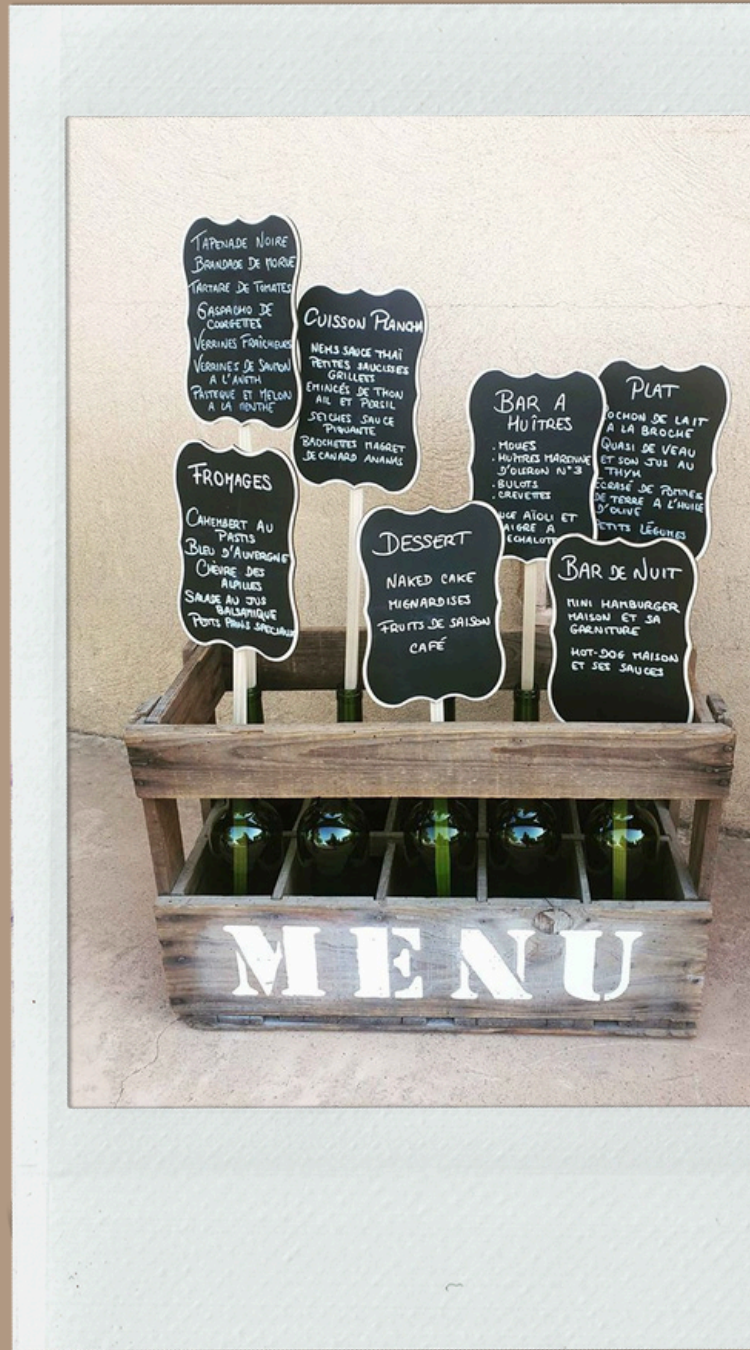 TAPENADE NOIRE
BRANDADE DE MORUE
TARTARE DE TOMATES
GASPACHO DE
COURGETTES
VERRINES FRAÎCHEURS
VERRINES DE SAUMON
A L'ANETH
PASTEQUE ET MELON
A LA MENTHE
CUISSON PLANCHA
NEMS SAUCE THAÏ
PETITES SAUCISSES
GRILLEES
EMINCÉS DE THON
AIL ET PERSIL
SEICHES SAUCE
PIQUANTE
BROCHETTES MAGRET
DE CANARD ANANAS
BAR A
HUÎTRES
. MOULES
. HUÎTRES MARENNE
D'OLERON N°3
. BULOTS
. CREVETTES
UCE AÏOLI ET
AIGRE A
ECHALOTE
PLAT
OCHON DE LAIT
A LA BROCHE
QUASI DE VEAU
ET SON JUS AU
THYM
ECRASÉ DE POMMES
DE TERRE A L'HUILE
D'OLIVE
PETITS LÉGUMES
FROMAGES
CAMEMBERT AU
PASTIS
BLEU D'AUVERGNE
CHÈVRE DES
ALPILLES
SALADE AU JUS
BALSAMIQUE
PETITS PAINS SPECIAUX
DESSERT
NAKED CAKE
MIGNARDISES
FRUITS DE SAISON
CAFÉ
BAR DE NUIT
MINI HAMBURGER
MAISON ET SA
GARNITURE
HOT-DOG MAISON
ET SES SAUCES
MENU